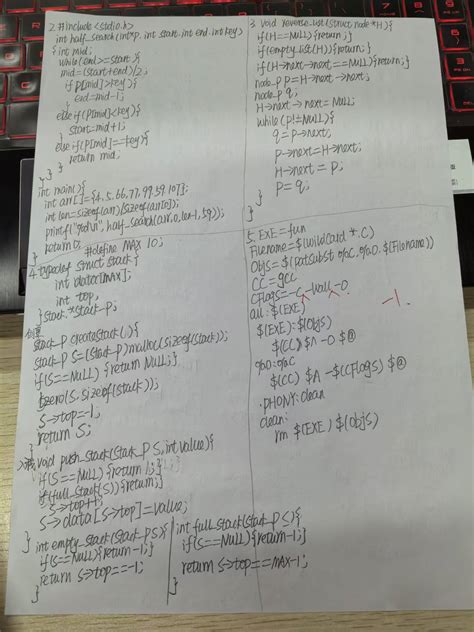 2. #include <stdio.h>
int half_search(int *p, int start, int end, int key)
{ int mid;
while(end>=start){
mid=(start+end)/2;
if p[mid]>key){
end=mid-1;
}
else if(p[mid]<key){
start=mid+1;
}
else if(p[mid]==key){
return mid;
}
} }
int main(){
int arr[]={4,5,66,77,99,59,107};
int len=sizeof(arr)/sizeof(arr[0]);
printf("%d\n", half_search(arr,0,len-1,59));
return 0;
}
#define MAX 10;
4. typedef struct stack{
int data[MAX];
int top;
}stack,*stack_p;
创建
stack_p createstack(){
stack_p S=(stack_p)malloc(sizeof(stack));
if(S==NULL) {return NULL;}
bzero(S,sizeof(stack));
S->top=-1;
return S;
}
void push_stack(stack_p S,int value){
if(S==NULL){return 1;}
if(full_stack(S)){return;}
S->top++;
S->data[S->top]=value;
}
int empty_stack(stack_p S){
if(S==NULL){return-1;}
return S->top==-1;
}
int full_stack(stack_p S){
if(S==NULL){return-1;}
return S->top==MAX-1;
}
3. void reverse_list(struct node *H){
if(H==NULL){return;}
if(empty_list(H)){return;}
if(H->next->next==NULL){return;}
node_p p=H->next->next;
node_p q;
H->next->next=NULL;
while(p!=NULL){
q=p->next;
p->next=H->next;
H->next=p;
p=q;
}
}
5. EXE=fun
Filename=$(wildcard *.c)
Objs=$(patsubst %.c,%.o,$(Filename))
CC=gcc
CFlags=-c -wall -o
all:$(EXE)
-1.
$(EXE):$(Objs)
$(CC) $^ -o $@
%.o:%.c
$(CC) $^ -$(CFlags) $@
.PHONY:clean
clean:
rm $(EXE) $(Objs)